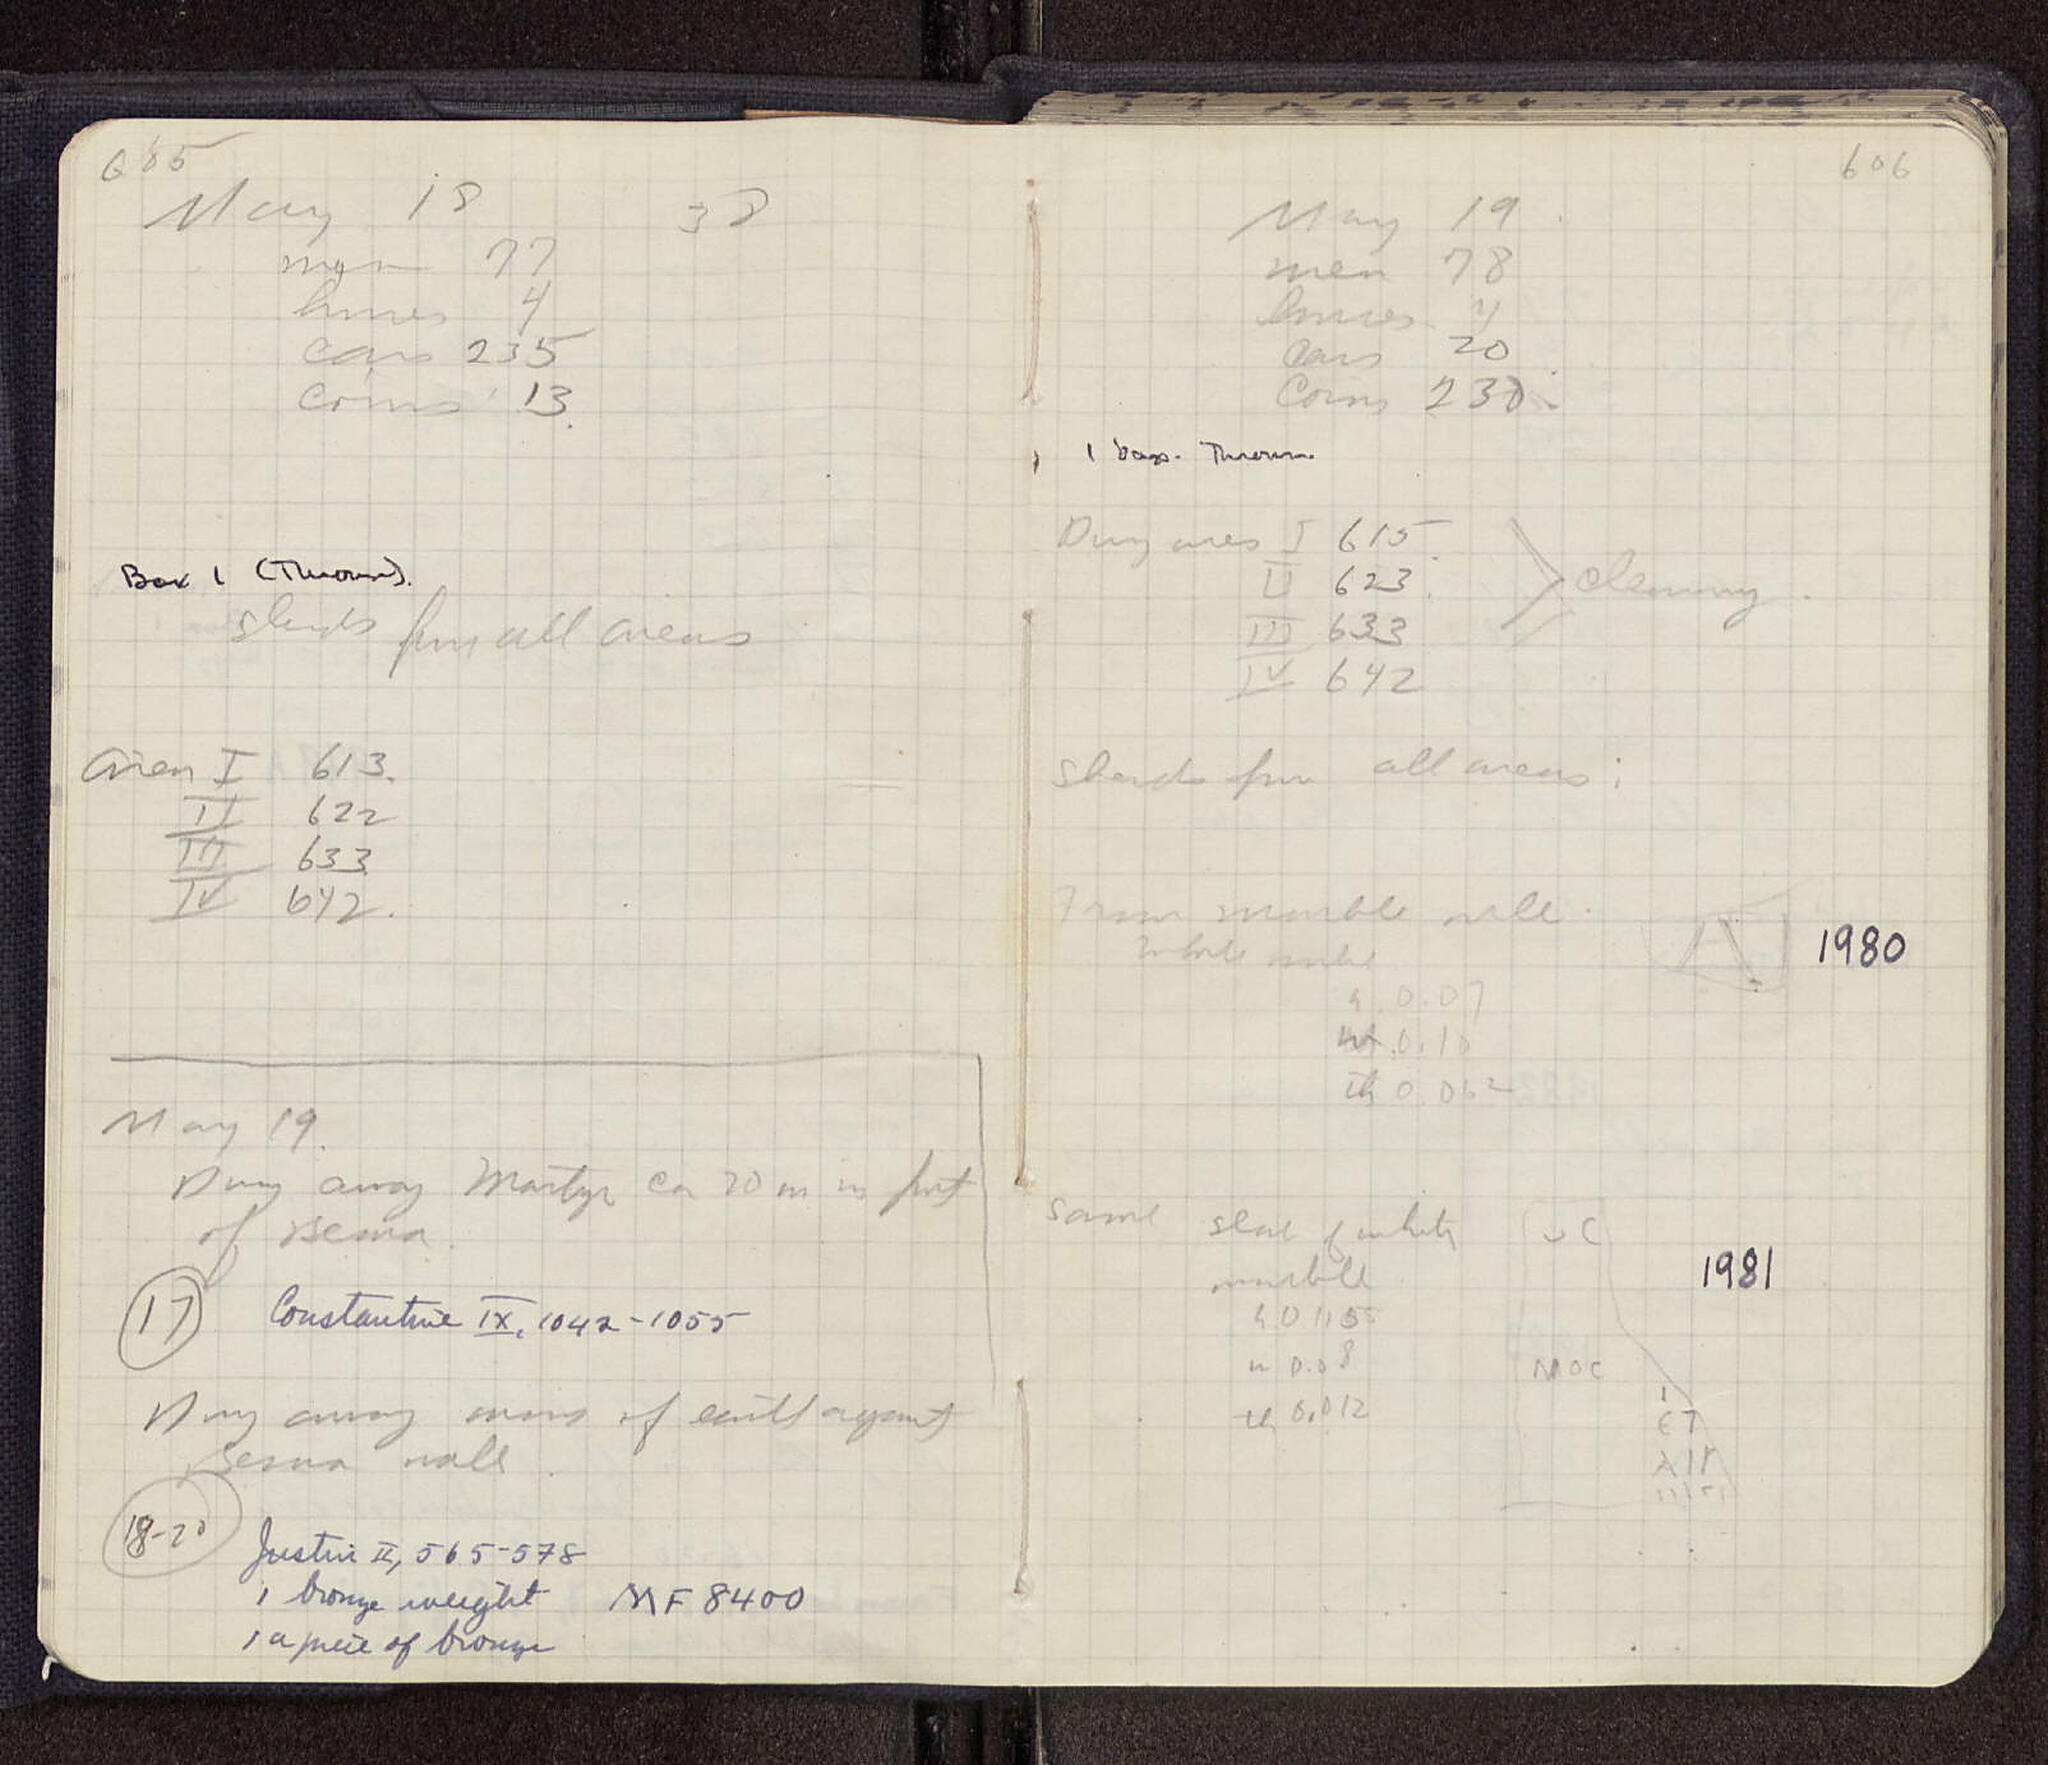 605
May 18 38
men 77
horses 4
cars 235
coins 13.
Box 1 (Thrown).
sherds from all areas
Area I 613.
II 622
III 633
IV 642.
May 19.
Dug away Martyr Ca 20 m in front
of Bema.
17 Constantine IX, 1042-1055
Dug away mass of earth against
Bema wall.
18-20
Justin II, 565-578
1 bronze weight MF 8400
1 a piece of bronze
606
May 19.
men 78
horses 4
cars
coins
1 box. Thrown.
Dug area I 615.
II 623.
III 633
IV 642
cleaning.
sherds from all areas:
From marble wall.
1980
h. 0.07
w. 0.10
th 0.062
Same slab of white
marble
1981
w 0.08
th 0.012